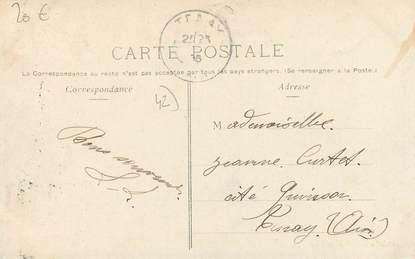 20 €
TENAY
CARTE POSTALE
La Correspondance au recto n'est pas acceptée par tous les pays étrangers. (Se renseigner à la Poste.)
Correspondance
Adresse
42
Bons souvenirs
Mademoiselle
Jeanne Curtet
cité Quinson
Tenay (Ain)